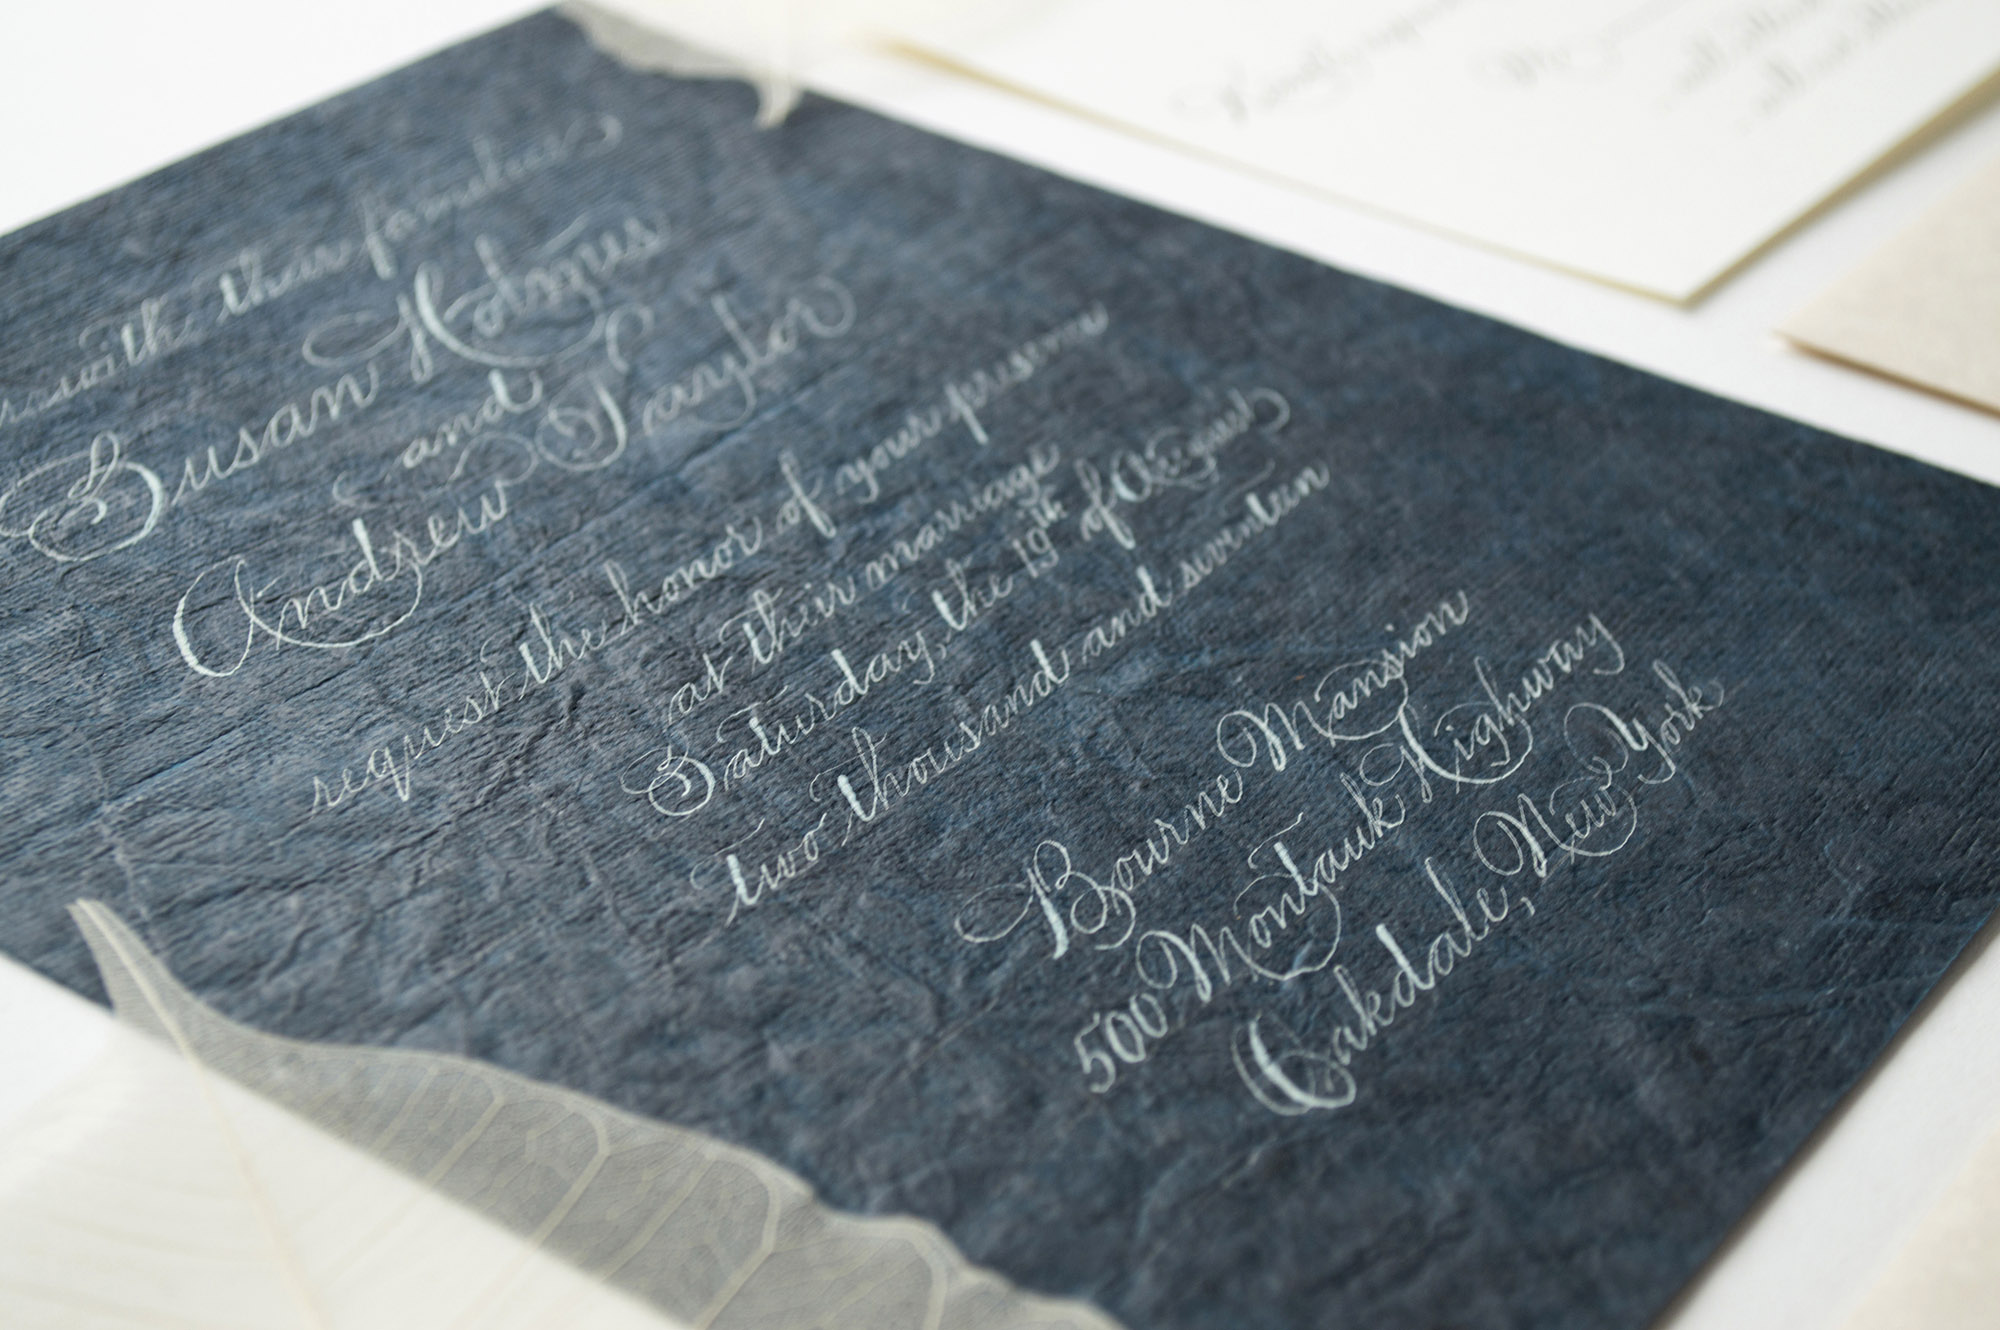 with their families
Susan Holmes
and
Andrew Taylor
request the honor of your presence
at their marriage
Saturday, the 19th of August
two thousand and seventeen
Bourne Mansion
500 Montauk Highway
Oakdale, New York